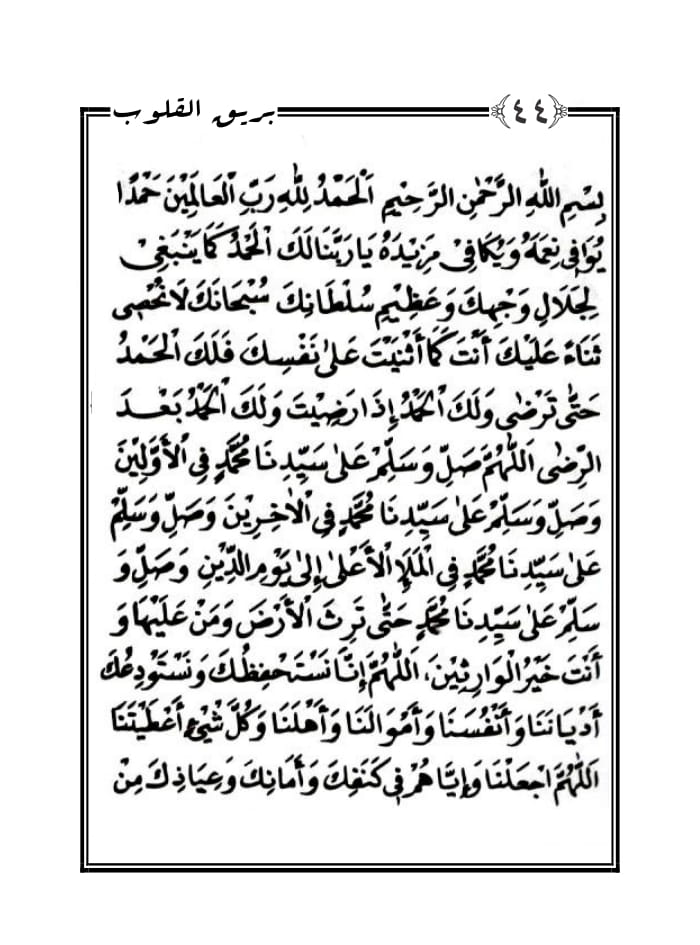 ﴿٤٤﴾ بريق القلوب
بِسْمِ اللّٰهِ الرَّحْمٰنِ الرَّحِيْمِ اَلْحَمْدُ لِلّٰهِ رَبِّ الْعَالَمِيْنَ حَمْدًا
يُوَافِى نِعَمَهُ وَيُكَافِىْ مَزِيْدَهُ يَا رَبَّنَا لَكَ الْحَمْدُ كَمَا يَنْبَغِىْ
لِجَلَالِ وَجْهِكَ وَعَظِيْمِ سُلْطَانِكَ سُبْحَانَكَ لَا نُحْصِى
ثَنَاءً عَلَيْكَ أَنْتَ كَمَا أَثْنَيْتَ عَلىٰ نَفْسِكَ فَلَكَ الْحَمْدُ
حَتّٰى تَرْضٰى وَلَكَ الْحَمْدُ إِذَا رَضِيْتَ وَلَكَ الْحَمْدُ بَعْدَ
الرِّضٰى اَللّٰهُمَّ صَلِّ وَسَلِّمْ عَلىٰ سَيِّدِنَا مُحَمَّدٍ فِى الْأَوَّلِيْنَ
وَصَلِّ وَسَلِّمْ عَلىٰ سَيِّدِنَا مُحَمَّدٍ فِى الْاٰخِرِيْنَ وَصَلِّ وَسَلِّمْ
عَلىٰ سَيِّدِنَا مُحَمَّدٍ فِى الْمَلَإِ الْأَعْلىٰ إِلىٰ يَوْمِ الدِّيْنِ وَصَلِّ وَ
سَلِّمْ عَلىٰ سَيِّدِنَا مُحَمَّدٍ حَتّٰى تَرِثَ الْأَرْضَ وَمَنْ عَلَيْهَا وَ
أَنْتَ خَيْرُ الْوَارِثِيْنَ، اَللّٰهُمَّ إِنَّا نَسْتَحْفِظُكَ وَنَسْتَوْدِعُكَ
أَدْيَانَنَا وَأَنْفُسَنَا وَأَمْوَالَنَا وَأَهْلَنَا وَكُلَّ شَىْءٍ أَعْطَيْتَنَا
اَللّٰهُمَّ اجْعَلْنَا وَإِيَّاهُمْ فِى كَنَفِكَ وَأَمَانِكَ وَعِيَاذِكَ مِنْ